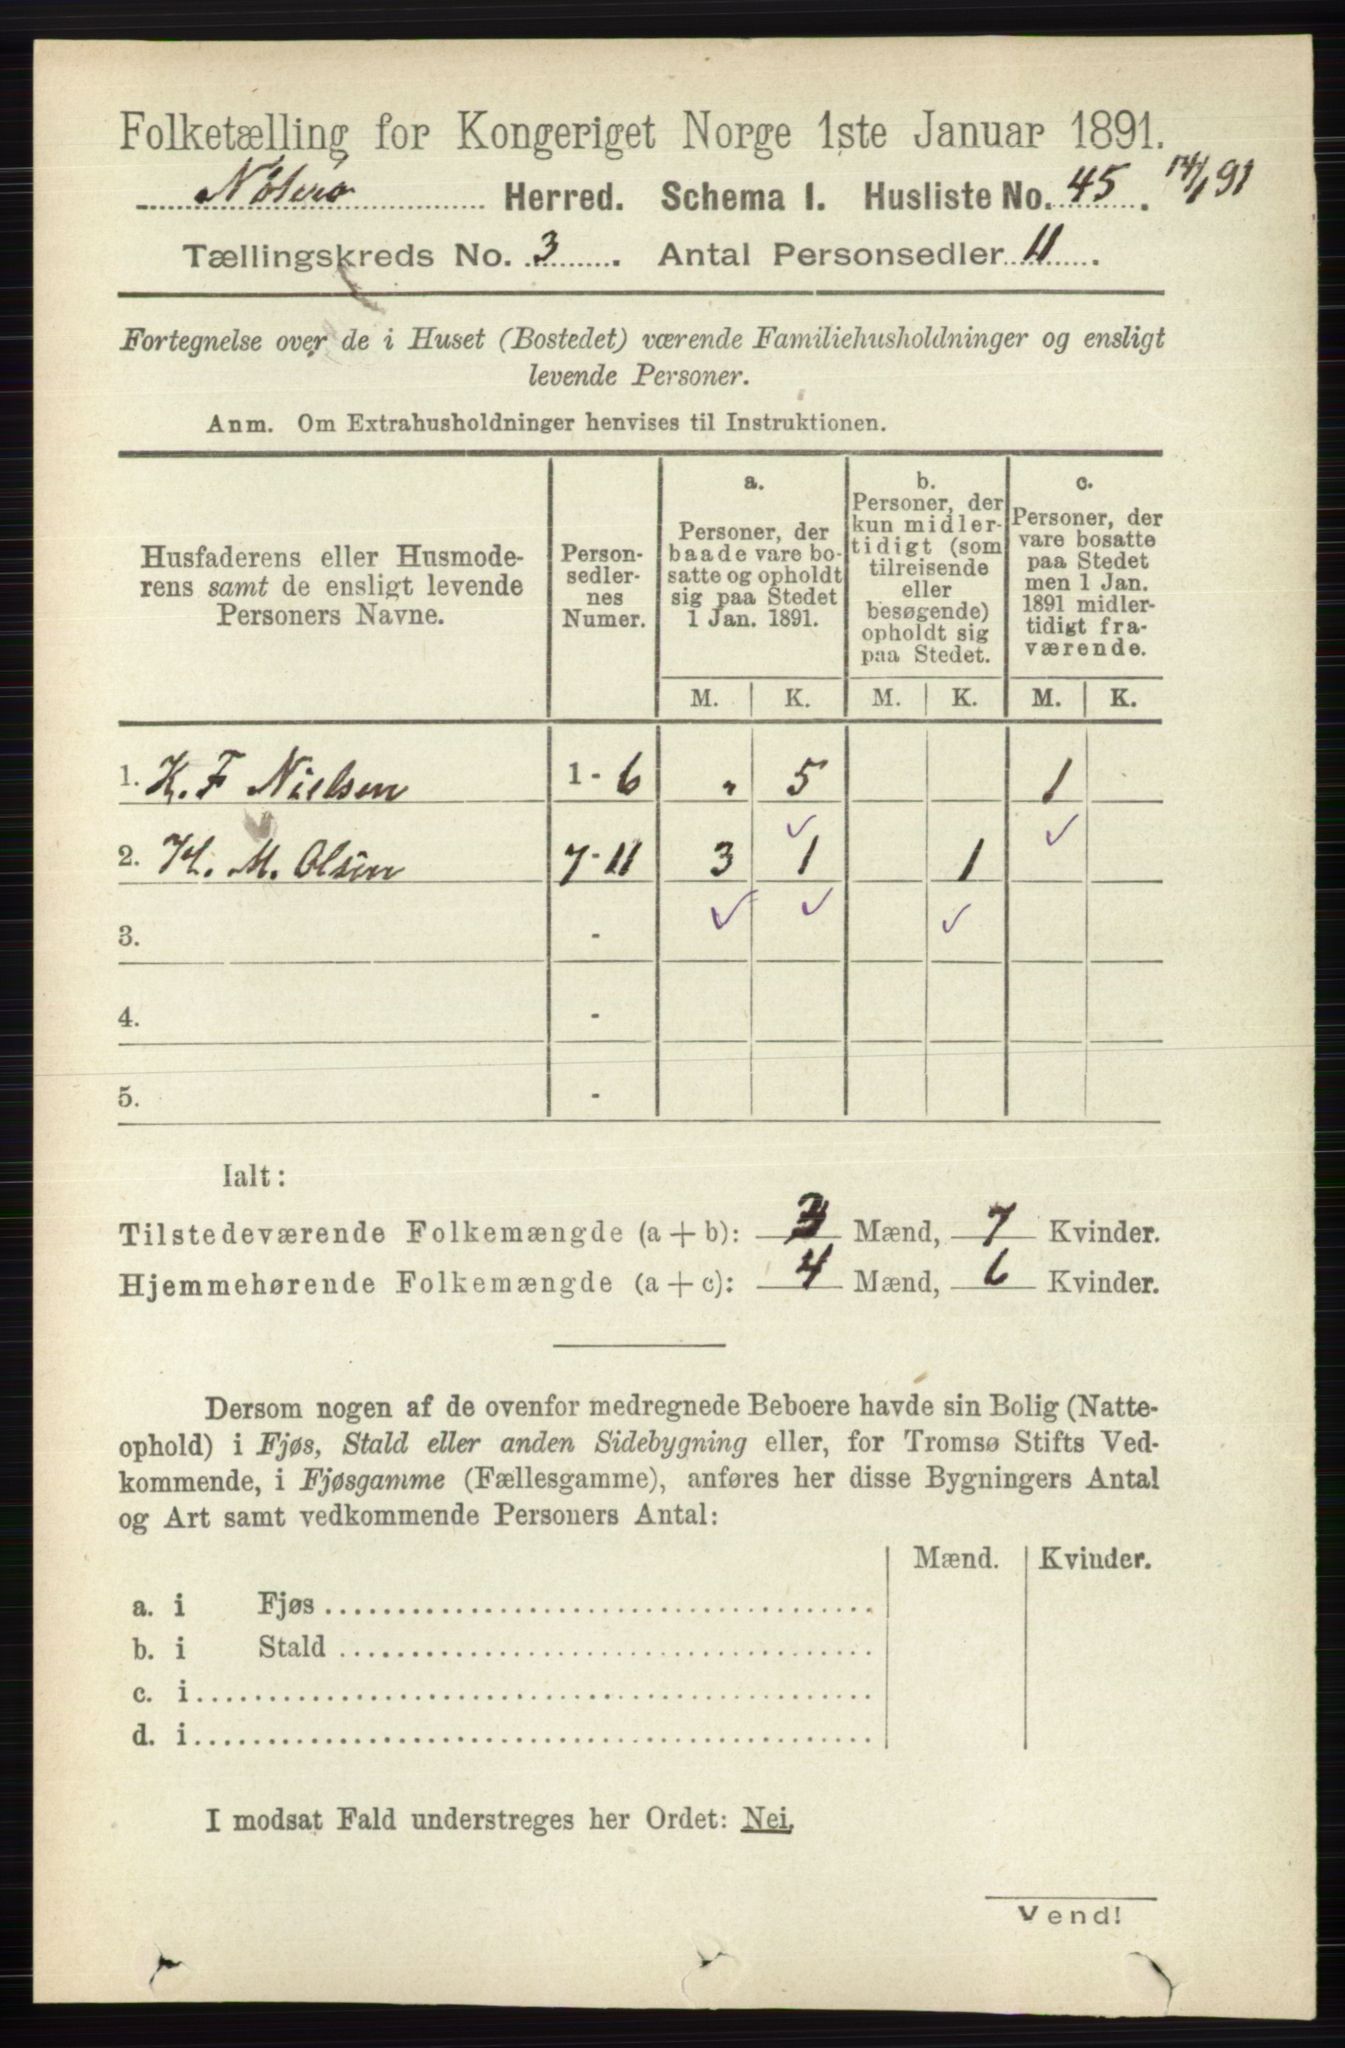 Folketælling for Kongeriget Norge 1ste Januar 1891.
Nøterø Herred. Schema I. Husliste No. 45. 14/1 91
Tællingskreds No. 3. Antal Personsedler 11.
Fortegnelse over de i Huset (Bostedet) værende Familiehusholdninger og ensligt
levende Personer.
Anm. Om Extrahusholdninger henvises til Instruktionen.
Husfaderens eller Husmode-
rens samt de ensligt levende
Personers Navne.
Person-
sedler-
nes
Numer.
a.
Personer, der
baade vare bo-
satte og opholdt
sig paa Stedet
1 Jan. 1891.
b.
Personer, der
kun midler-
tidigt (som
tilreisende
eller
besøgende)
opholdt sig
paa Stedet.
c.
Personer, der
vare bosatte
paa Stedet
men 1 Jan.
1891 midler-
tidigt fra-
værende.
M. K. M. K. M. K.
1. K. F Nielsen 1 - 6 " 5 1
2. H. M. Olsen 7 - 11 3 1 1
3. -
4. -
5. -
Ialt:
Tilstedeværende Folkemængde (a + b): 3 Mænd, 7 Kvinder.
Hjemmehørende Folkemængde (a + c): 4 Mænd, 6 Kvinder.
Dersom nogen af de ovenfor medregnede Beboere havde sin Bolig (Natte-
ophold) i Fjøs, Stald eller anden Sidebygning eller, for Tromsø Stifts Ved-
kommende, i Fjøsgamme (Fællesgamme), anføres her disse Bygningers Antal
og Art samt vedkommende Personers Antal:
Mænd. Kvinder.
a. i Fjøs
b. i Stald
c. i
d. i
I modsat Fald understreges her Ordet: Nei.
Vend!